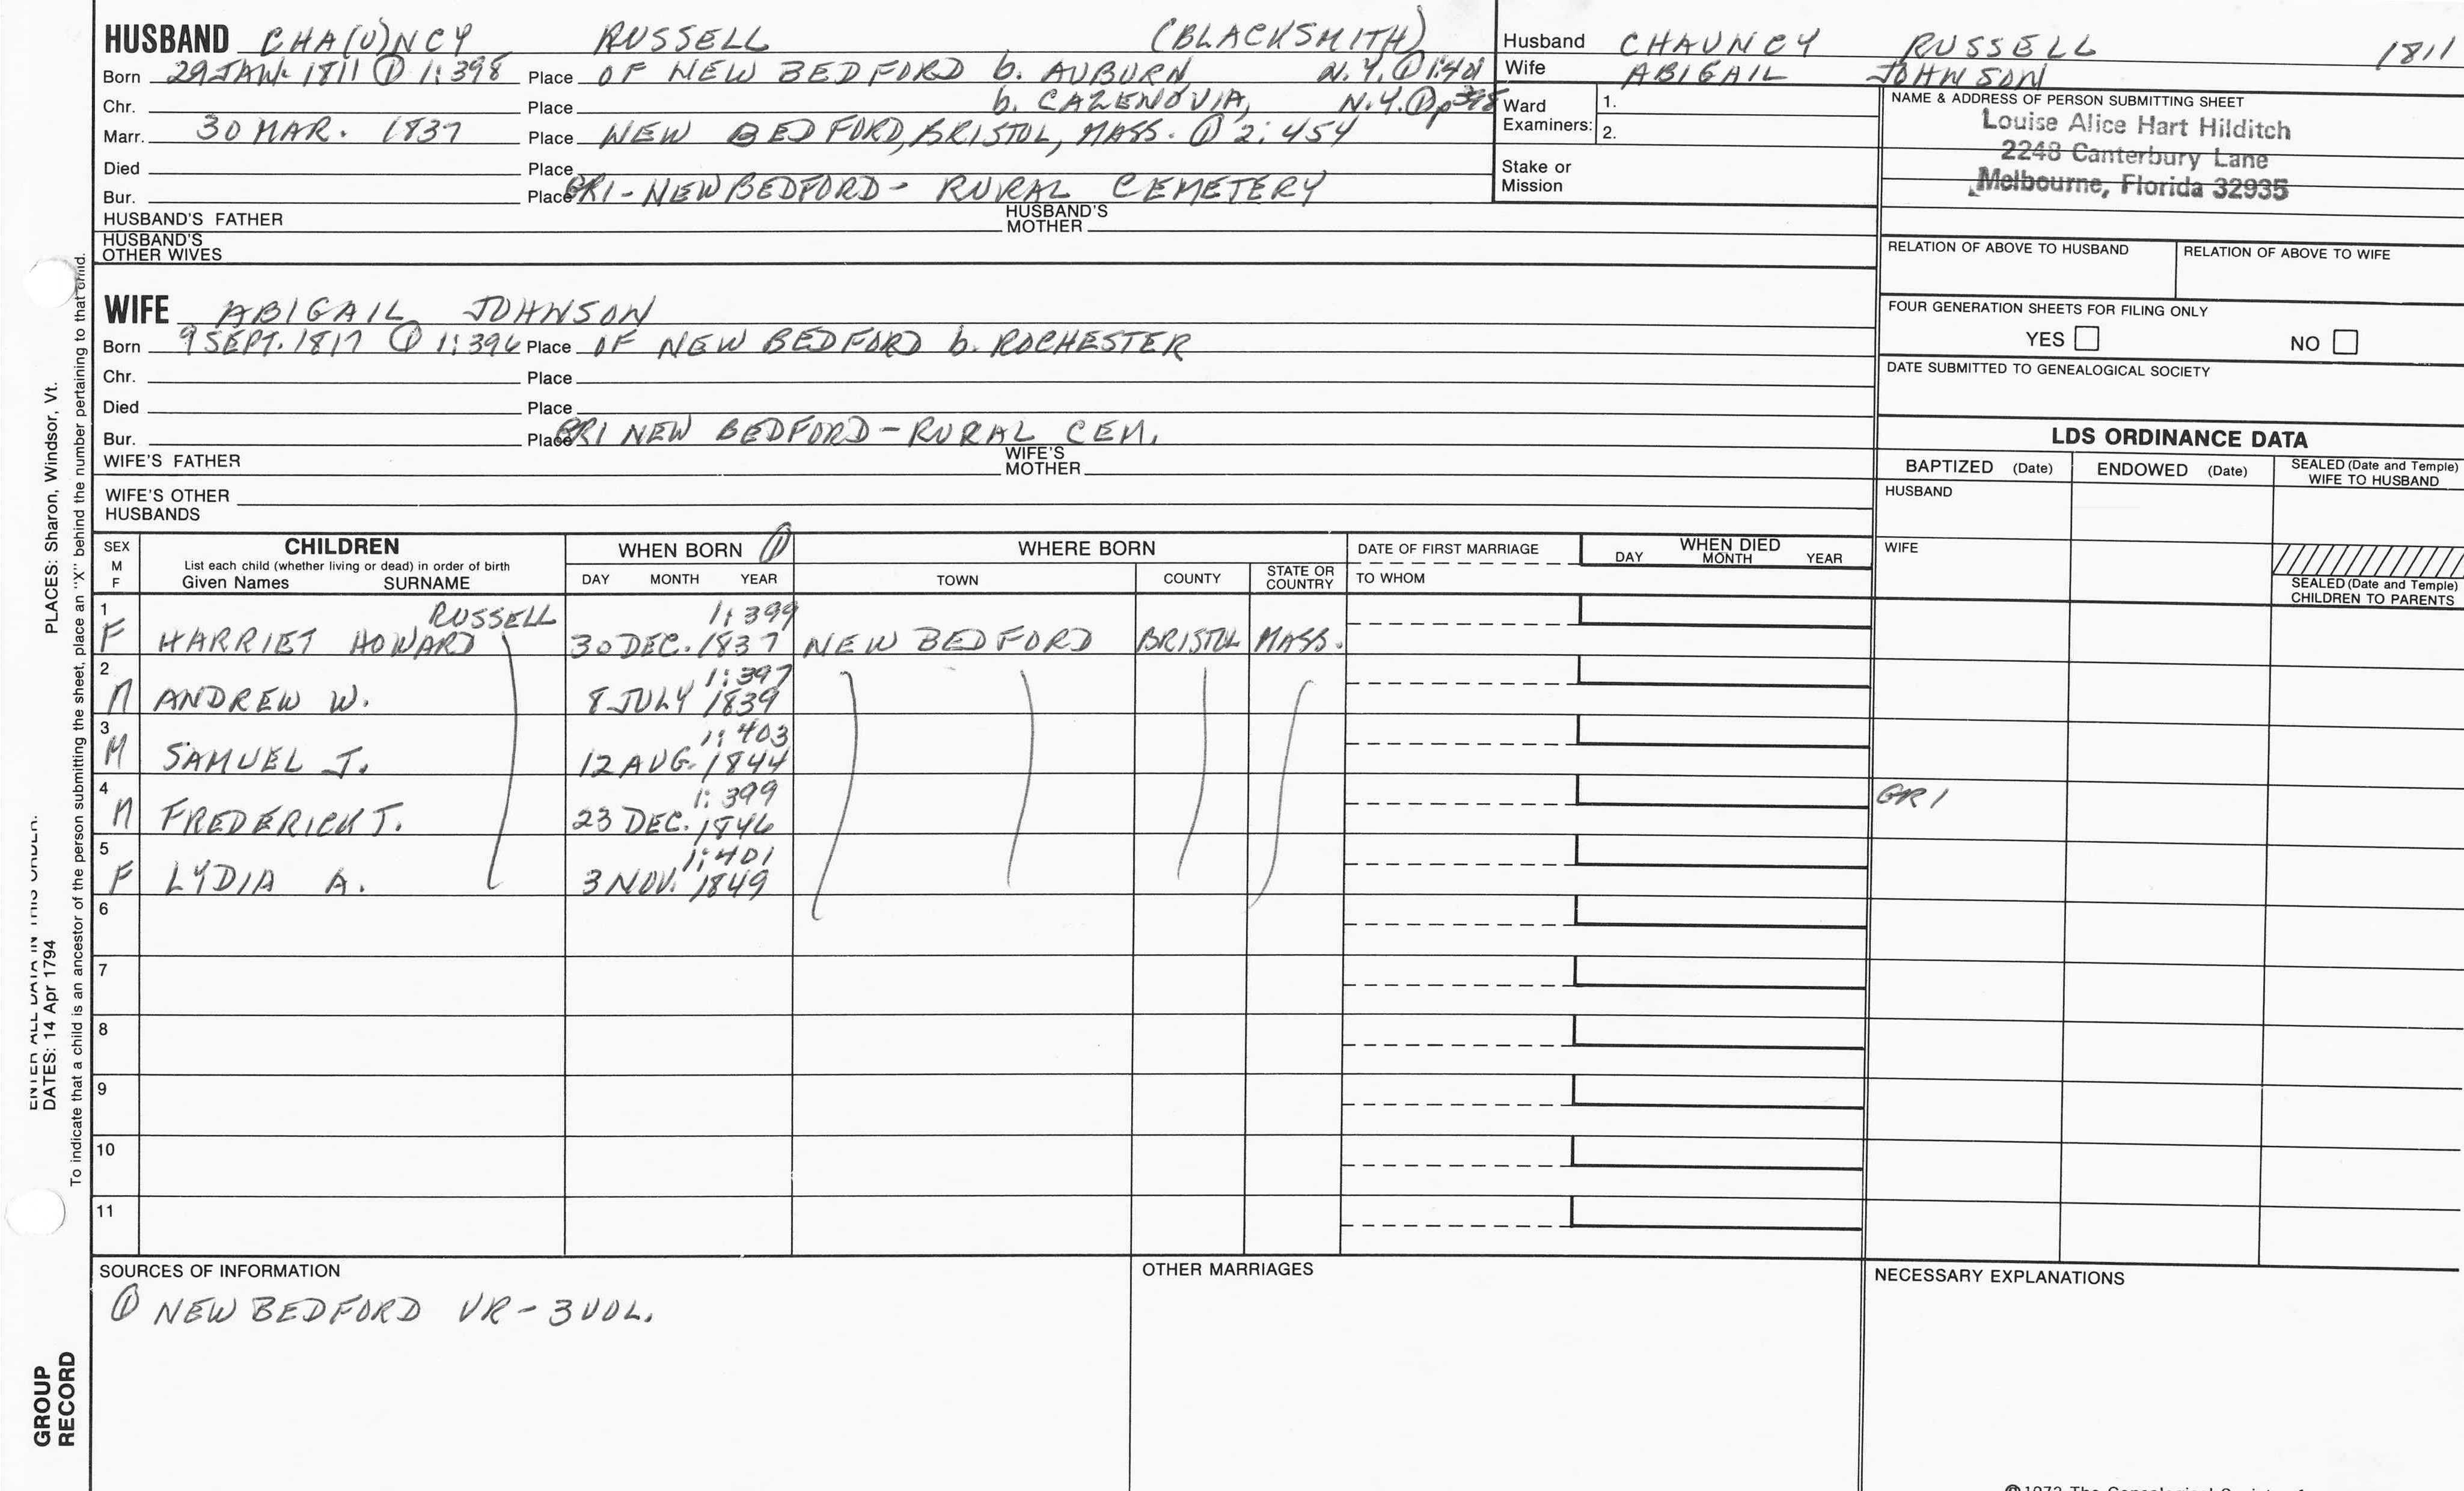 HUSBAND CHA(U)NCY RUSSELL (BLACKSMITH)
Born 29 JAN. 1811 ① 1:398 Place OF NEW BEDFORD b. AUBURN N.Y. ① 1:401
Chr. Place b. CAZENOVIA, N.Y. ① p398
Marr. 30 MAR. 1837 Place NEW BEDFORD, BRISTOL, MASS. ① 2:454
Died Place
Bur. Place GR1-NEW BEDFORD- RURAL CEMETERY
HUSBAND'S FATHER HUSBAND'S MOTHER
HUSBAND'S OTHER WIVES
Husband CHAUNCY RUSSELL 1811
Wife ABIGAIL JOHNSON
Ward Examiners: 1.
2.
Stake or Mission
NAME & ADDRESS OF PERSON SUBMITTING SHEET
Louise Alice Hart Hilditch
2248 Canterbury Lane
Melbourne, Florida 32935
RELATION OF ABOVE TO HUSBAND RELATION OF ABOVE TO WIFE
FOUR GENERATION SHEETS FOR FILING ONLY
YES NO
DATE SUBMITTED TO GENEALOGICAL SOCIETY
WIFE ABIGAIL JOHNSON
Born 9 SEPT. 1817 ① 1:396 Place OF NEW BEDFORD b. ROCHESTER
Chr. Place
Died Place
Bur. Place GR1 NEW BEDFORD-RURAL CEM.
WIFE'S FATHER WIFE'S MOTHER
WIFE'S OTHER HUSBANDS
LDS ORDINANCE DATA
BAPTIZED (Date) ENDOWED (Date) SEALED (Date and Temple) WIFE TO HUSBAND
HUSBAND
WIFE
SEALED (Date and Temple) CHILDREN TO PARENTS
SEX M F
CHILDREN
List each child (whether living or dead) in order of birth
Given Names SURNAME
WHEN BORN ①
DAY MONTH YEAR
WHERE BORN
TOWN COUNTY STATE OR COUNTRY
DATE OF FIRST MARRIAGE
TO WHOM
WHEN DIED
DAY MONTH YEAR
1 RUSSELL 1:399
F HARRIET HOWARD 30 DEC. 1837 NEW BEDFORD BRISTOL MASS.
2 1:397
M ANDREW W. 8 JULY 1839
3 1:403
M SAMUEL J. 12 AUG. 1844
4 1:399 GR1
M FREDERICK J. 23 DEC. 1846
5 1:401
F LYDIA A. 3 NOV. 1849
6
7
8
9
10
11
SOURCES OF INFORMATION
① NEW BEDFORD VR-3 VOL.
OTHER MARRIAGES
NECESSARY EXPLANATIONS
PLACES: Sharon, Windsor, Vt.
DATES: 14 Apr 1794
To indicate that a child is an ancestor of the person submitting the sheet, place an "X" behind the number pertaining to that child.
GROUP RECORD